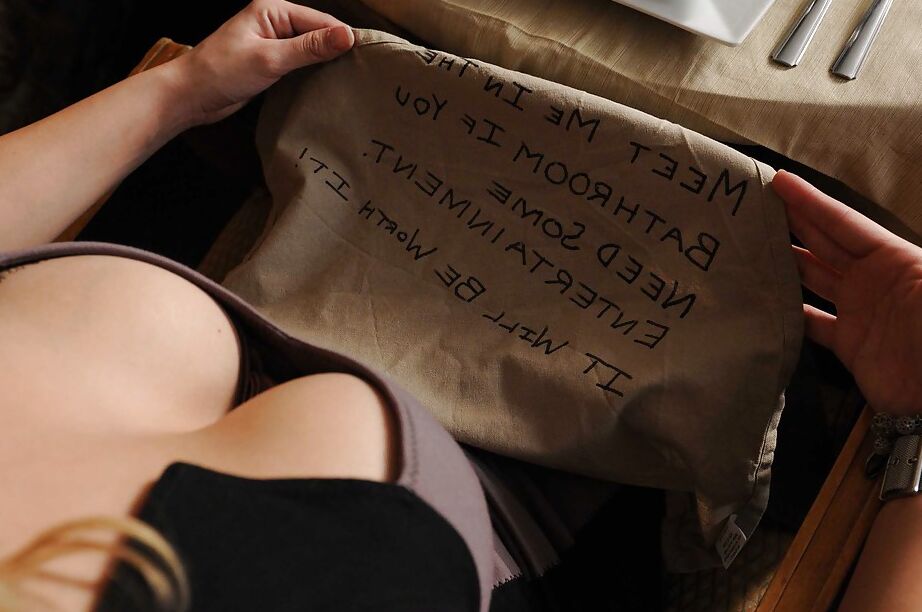 MEET ME IN THE
BATHROOM IF YOU
NEED SOME
ENTERTAINMENT.
IT WILL BE WORTH IT!